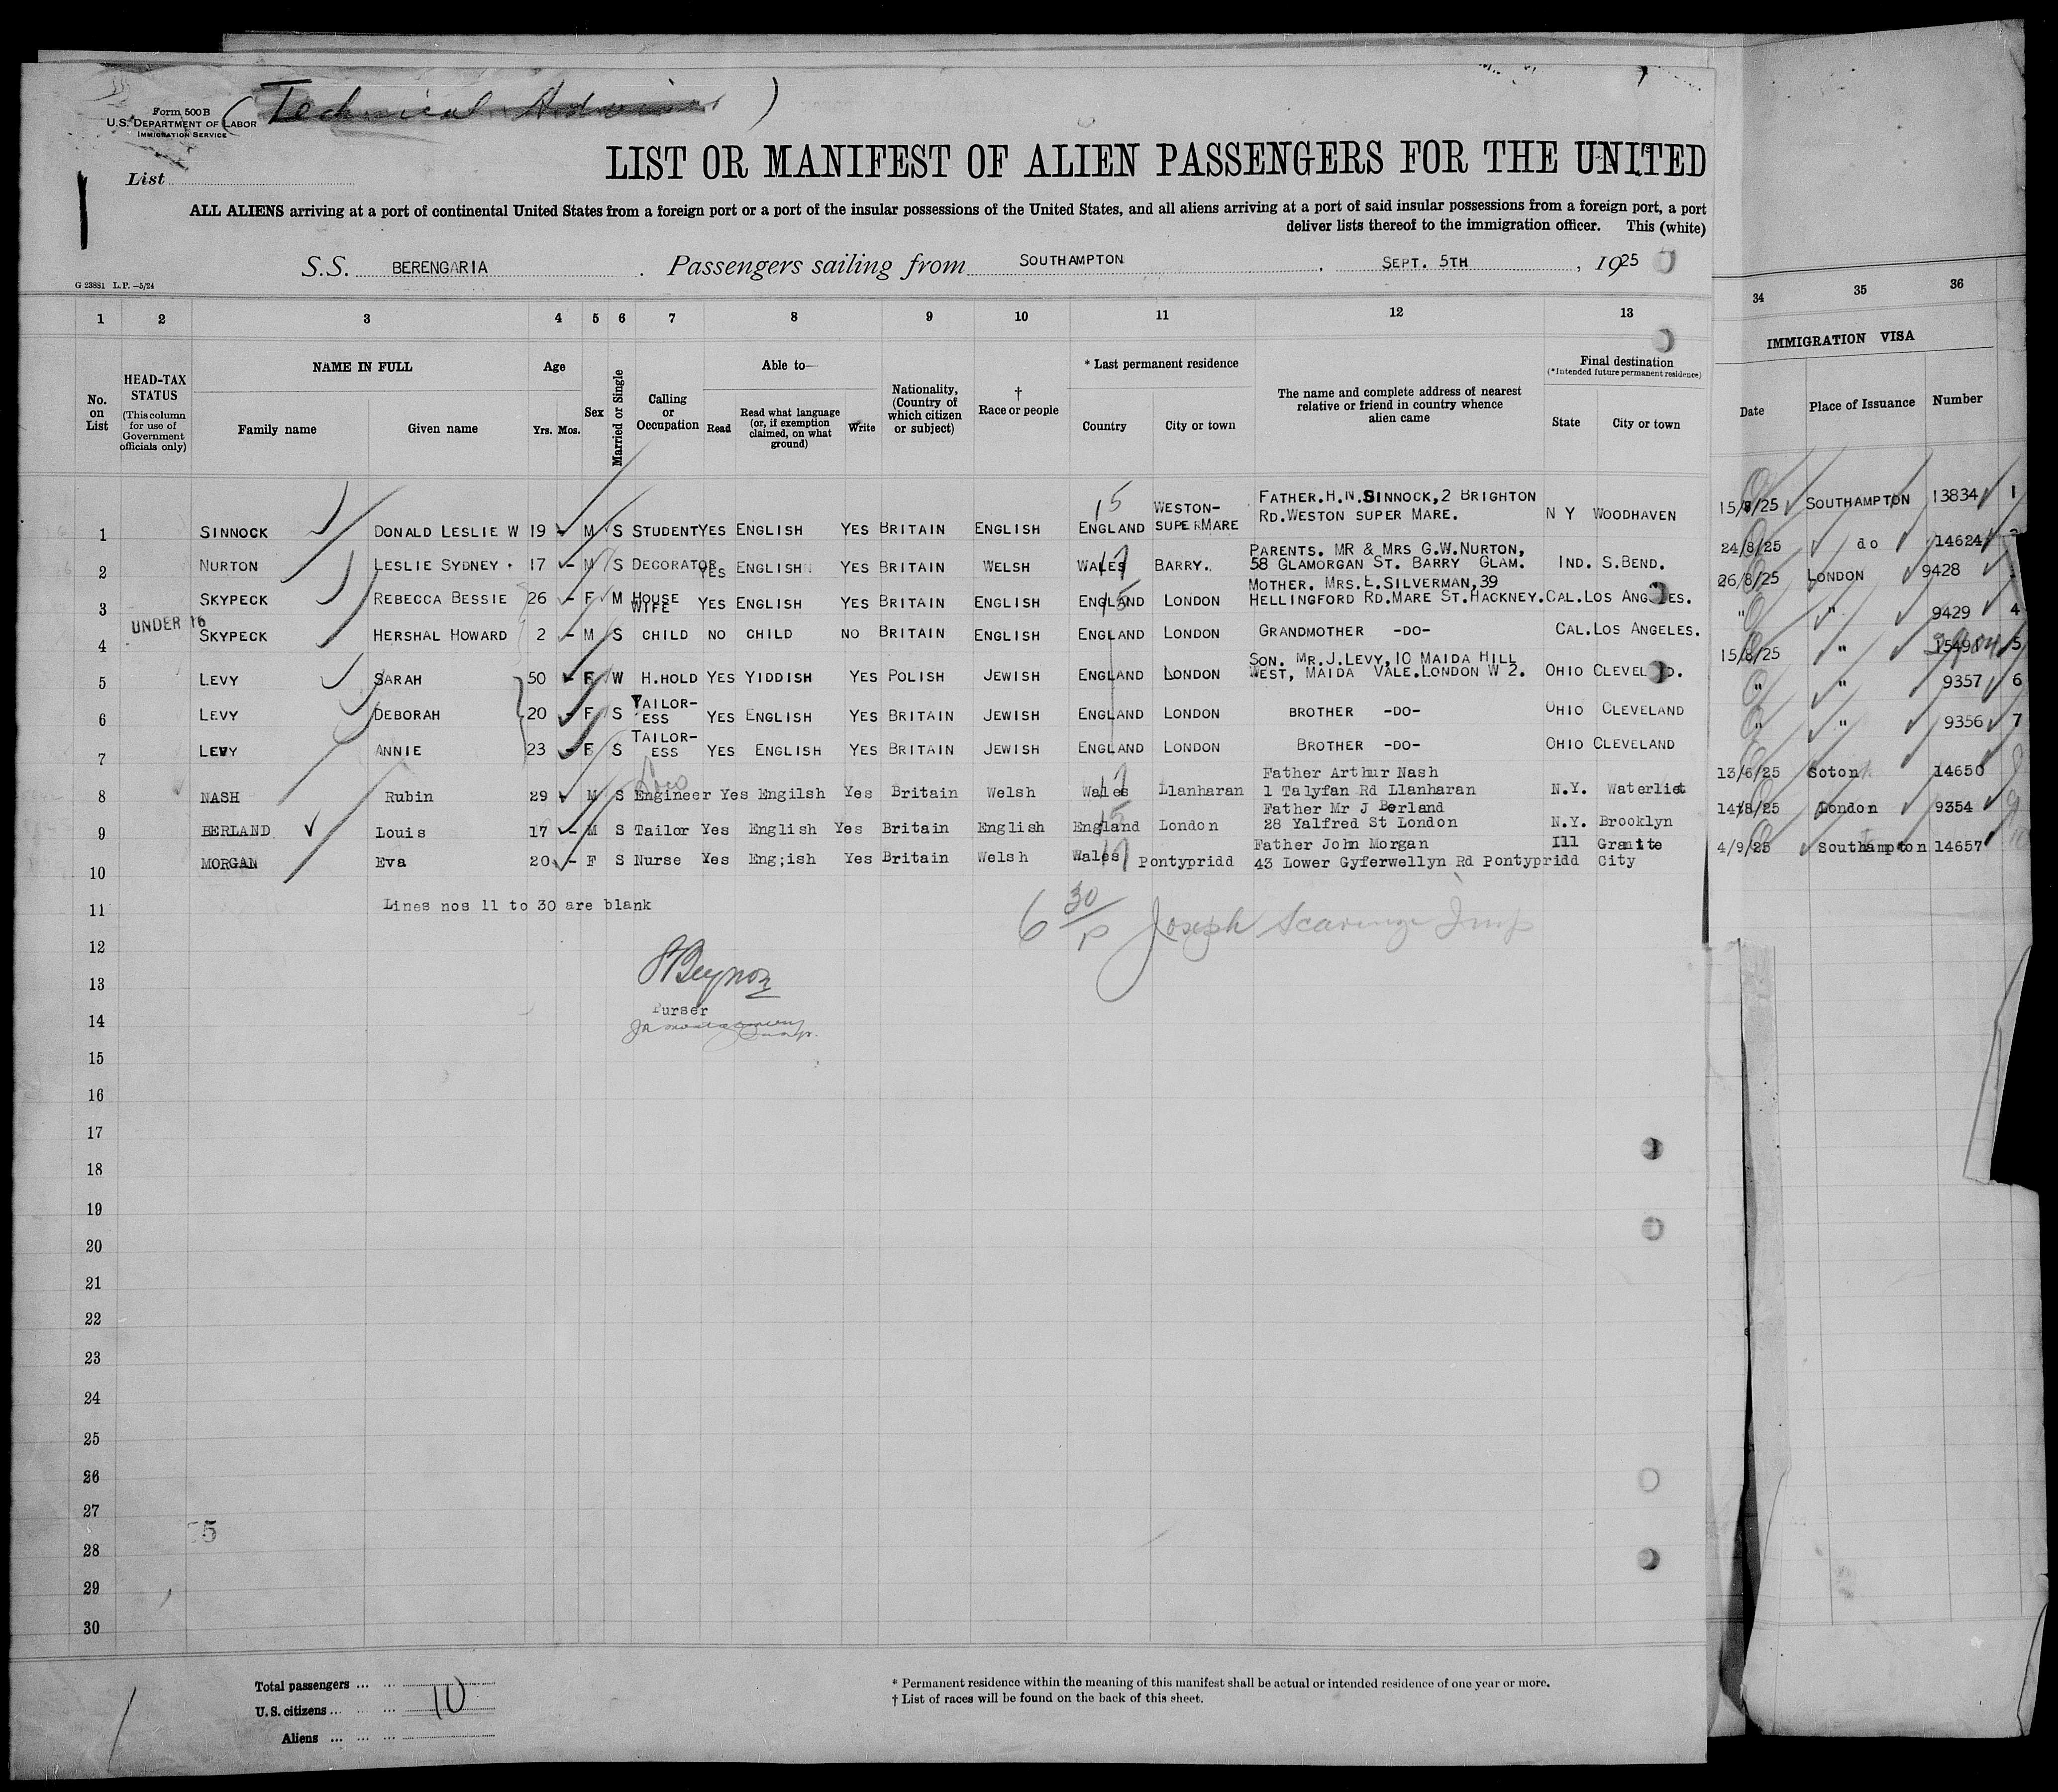 (Technical Advisor)
Form 500 B
U.S. DEPARTMENT OF LABOR
IMMIGRATION SERVICE
List
LIST OR MANIFEST OF ALIEN PASSENGERS FOR THE UNITED
ALL ALIENS arriving at a port of continental United States from a foreign port or a port of the insular possessions of the United States, and all aliens arriving at a port of said insular possessions from a foreign port, a port
deliver lists thereof to the immigration officer. This (white)
S.S. BERENGARIA. Passengers sailing from SOUTHAMPTON, SEPT. 5TH, 1925
G 23881 L.P.—5/24
1 2 3 4 5 6 7 8 9 10 11 12 13 34 35 36
No. on List
HEAD-TAX STATUS (This column for use of Government officials only)
NAME IN FULL
Family name Given name
Age
Yrs. Mos.
Sex
Married or Single
Calling or Occupation
Able to—
Read Read what language (or, if exemption claimed, on what ground) Write
Nationality, (Country of which citizen or subject)
† Race or people
* Last permanent residence
Country City or town
The name and complete address of nearest relative or friend in country whence alien came
Final destination
(*Intended future permanent residence)
State City or town
IMMIGRATION VISA
Date Place of Issuance Number
1 SINNOCK DONALD LESLIE W 19 - M S STUDENT YES ENGLISH YES BRITAIN ENGLISH 15 ENGLAND WESTON-SUPERMARE FATHER.H.N.SINNOCK,2 BRIGHTON RD.WESTON SUPER MARE. N Y WOODHAVEN 15/8/25 SOUTHAMPTON 13834 1
2 NURTON LESLIE SYDNEY. 17 - M S DECORATOR YES ENGLISH YES BRITAIN WELSH WALES BARRY. PARENTS. MR & MRS G.W.NURTON, 58 GLAMORGAN ST. BARRY GLAM. IND. S.BEND. 24/8/25 do 14624
3 SKYPECK REBECCA BESSIE 26 - F M HOUSE WIFE YES ENGLISH YES BRITAIN ENGLISH ENGLAND LONDON MOTHER. MRS.L.SILVERMAN,39 HELLINGFORD RD.MARE ST.HACKNEY. CAL.LOS ANGELES. 26/8/25 LONDON 9428
UNDER 16
4 SKYPECK HERSHAL HOWARD 2 - M S CHILD NO CHILD NO BRITAIN ENGLISH ENGLAND LONDON GRANDMOTHER -DO- CAL.LOS ANGELES. " " 9429 4
5 LEVY SARAH 50 F W H.HOLD YES YIDDISH YES POLISH JEWISH ENGLAND LONDON SON. MR.J.LEVY,10 MAIDA HILL WEST, MAIDA VALE.LONDON W 2. OHIO CLEVELAND. 15/8/25 " 5
6 LEVY DEBORAH 20 - F S TAILOR-ESS YES ENGLISH YES BRITAIN JEWISH ENGLAND LONDON BROTHER -DO- OHIO CLEVELAND " " 9357 6
7 LEVY ANNIE 23 - F S TAILOR-ESS YES ENGLISH YES BRITAIN JEWISH ENGLAND LONDON BROTHER -DO- OHIO CLEVELAND " " 9356 7
8 NASH Rubin 29 M S Engineer Yes Engilsh Yes Britain Welsh Wales Llanharan Father Arthur Nash 1 Talyfan Rd Llanharan N.Y. Waterliet 13/6/25 Soton 14650
9 BERLAND Louis 17 - M S Tailor Yes English Yes Britain English England London Father Mr J Berland 28 Yalfred St London N.Y. Brooklyn 14/8/25 London 9354 9
10 MORGAN Eva 20 - F S Nurse Yes Eng;ish Yes Britain Welsh Wales Pontypridd Father John Morgan 43 Lower Gyferwellyn Rd Pontypridd Ill Granite City 4/9/25 Southampton 14657
11 Lines nos 11 to 30 are blank
6 30/P Joseph
12
13 Beynon
Purser
14
15
16
17
18
19
20
21
22
23
24
25
26
27
28
29
30
Total passengers ... ...
U.S. citizens ... ... ... 10
Aliens ... ... ...
* Permanent residence within the meaning of this manifest shall be actual or intended residence of one year or more.
† List of races will be found on the back of this sheet.